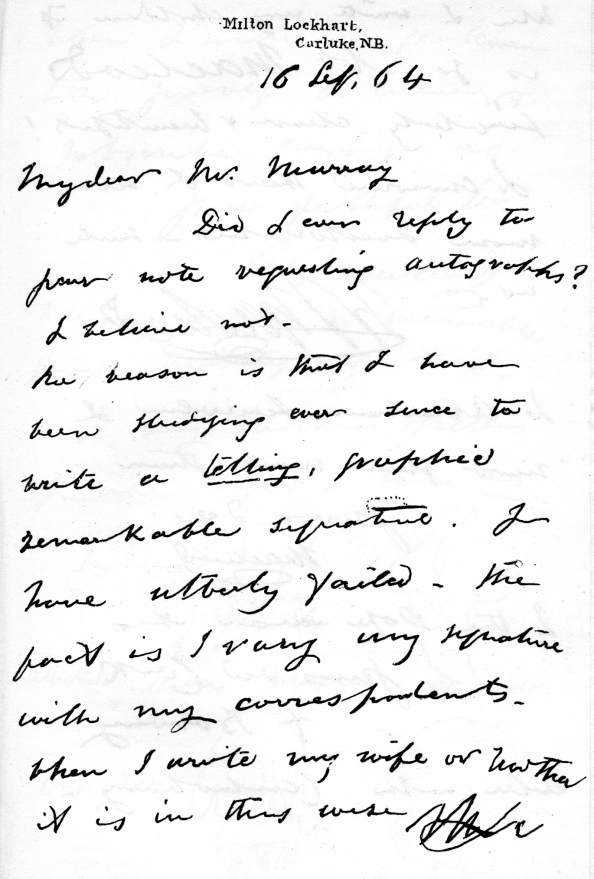 Milton Lockhart,
Carluke, N.B.
16 Sep. 64
My dear Mr. Murray
Did I ever reply to
your note requesting autographs?
I believe not -
The reason is that I have
been studying ever since to
write a telling, graphic
remarkable signature. I
have utterly failed - The
fact is I vary my signature
with my correspondents -
When I write my wife or Mother
it is in this wise